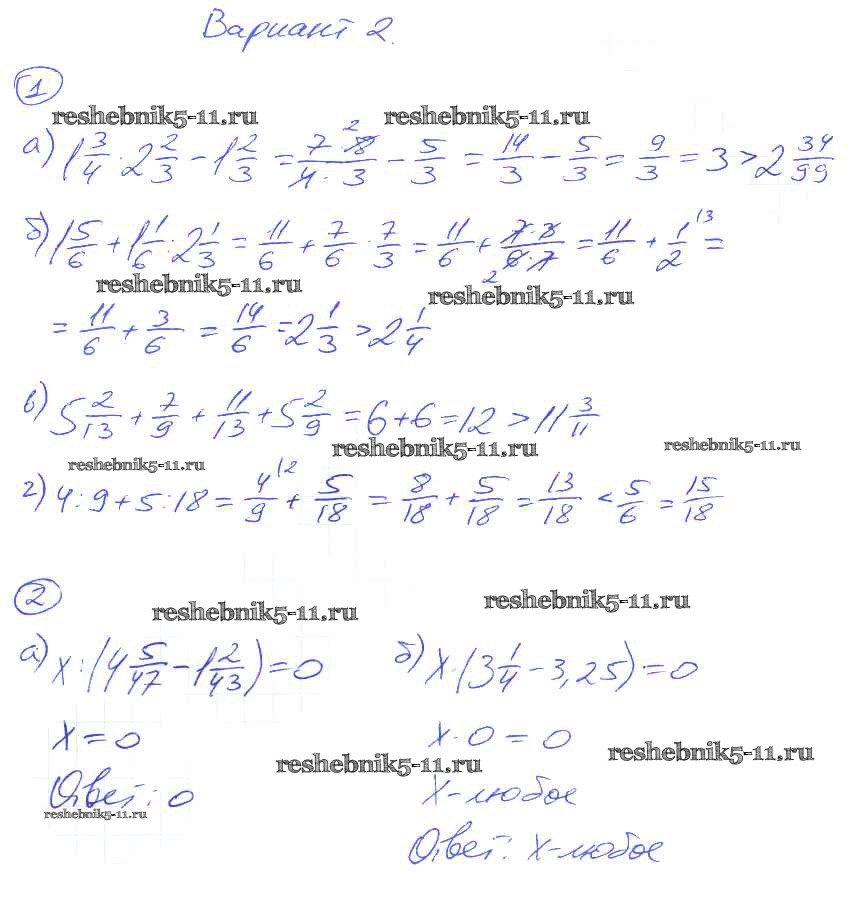 Вариант 2.
1
reshebnik5-11.ru reshebnik5-11.ru
а) 1 3/4 · 2 2/3 - 1 2/3 = 7 · 8 2 / 4 · 3 - 5/3 = 14/3 - 5/3 = 9/3 = 3 > 2 34/99
б) 1 5/6 + 1 1/6 · 2 1/3 = 11/6 + 7/6 · 7/3 = 11/6 + 7 · 3 / 6 · 7 2 = 11/6 + 1/2 \3 =
reshebnik5-11.ru reshebnik5-11.ru
= 11/6 + 3/6 = 14/6 = 2 1/3 > 2 1/4
в) 5 2/13 + 7/9 + 11/13 + 5 2/9 = 6 + 6 = 12 > 11 3/11
reshebnik5-11.ru reshebnik5-11.ru reshebnik5-11.ru
г) 4 : 9 + 5 : 18 = 4/9 \2 + 5/18 = 8/18 + 5/18 = 13/18 < 5/6 = 15/18
2
reshebnik5-11.ru reshebnik5-11.ru
а) x : (4 5/47 - 1 2/43) = 0 б) x · (3 1/4 - 3,25) = 0
x = 0 x · 0 = 0
reshebnik5-11.ru reshebnik5-11.ru
Ответ: 0 x - любое
reshebnik5-11.ru
Ответ: x - любое